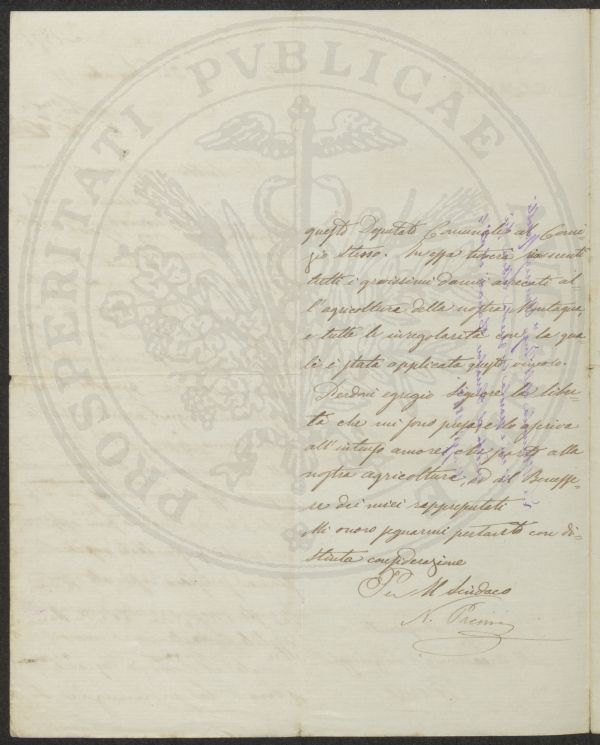 PROSPERITATI PVBLICAE
questo Deputato Comunale al Comi
zio stesso. In essa troverà riassunti
tutti i gravissimi danni arrecati al
l'agricoltura della nostra Montagna,
e tutte le irregolarità con la qua
le è stata applicata questo
Perdoni egregio Signore la liber
tà che mi sono presa, e lo ascriva
all'intenso amore che porto alla
nostra agricoltura, ed al Benesse
re dei miei rappresentati
Mi onoro segnarmi pertanto con di
stinta considerazione
Per Il Sindaco
N.